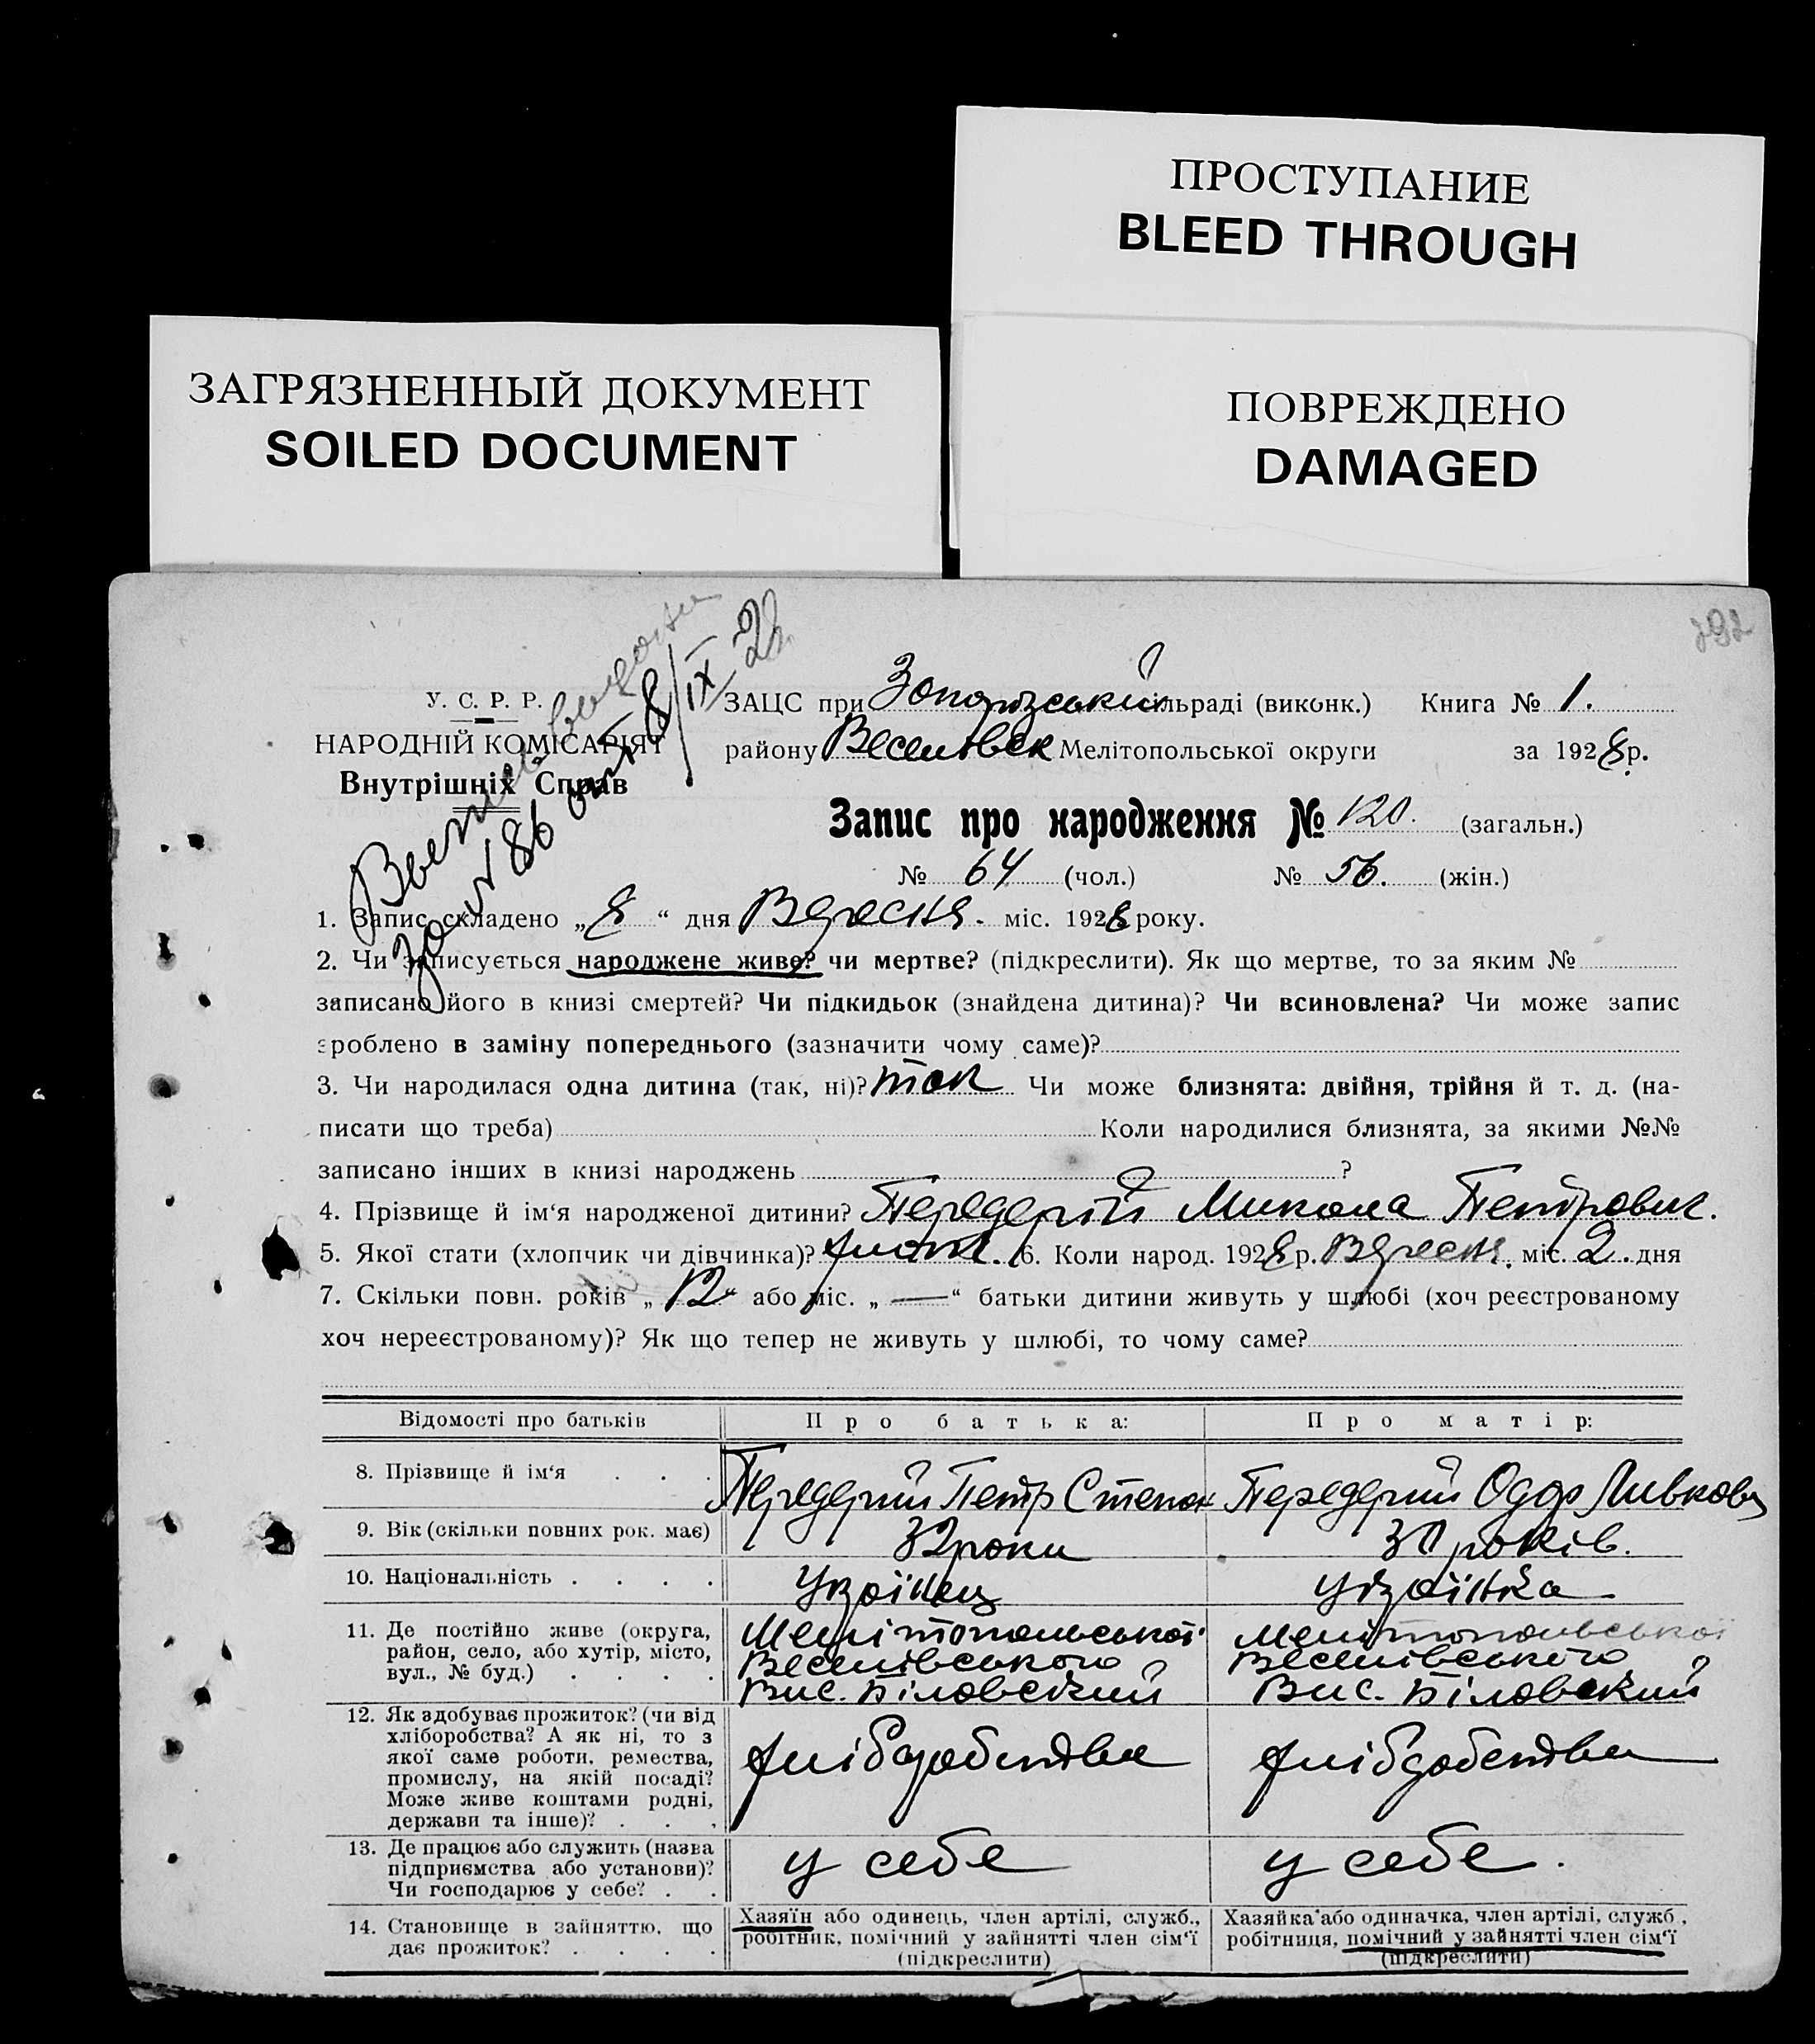 ПРОСТУПАНИЕ
BLEED THROUGH
ЗАГРЯЗНЕННЫЙ ДОКУМЕНТ
SOILED DOCUMENT
ПОВРЕЖДЕНО
DAMAGED
У. С. Р. Р.
НАРОДНІЙ КОМІСАРІЯТ
Внутрішніх Справ
за № 86 от 8/IX 28
ЗАЦС при Запорізський сільраді (виконк.) Книга № 1.
району Веселовск Мелітопольської округи за 1928 р.
Запис про народження № 120. (загальн.)
№ 64 (чол.) № 56. (жін.)
1. Запис складено „8“ дня Вересня. міс. 1928 року.
2. Чи записується народжене живе? чи мертве? (підкреслити). Як що мертве, то за яким №
записано його в книзі смертей? Чи підкидьок (знайдена дитина)? Чи всиновлена? Чи може запис
зроблено в заміну попереднього (зазначити чому саме)?
3. Чи народилася одна дитина (так, ні)? так Чи може близнята: двійня, трійня й т. д. (на-
писати що треба) Коли народилися близнята, за якими №№
записано інших в книзі народжень ?
4. Прізвище й ім‘я народженої дитини? Передерій Микола Петрович.
5. Якої стати (хлопчик чи дівчинка)? хлопч. 6. Коли народ. 1928 р. Вересня. міс. 2. дня
7. Скільки повн. років „12“ або міс. „—“ батьки дитини живуть у шлюбі (хоч реєстрованому
хоч нереєстрованому)? Як що тепер не живуть у шлюбі, то чому саме?
Відомості про батьків Про батька: Про матір:
8. Прізвище й ім‘я . . . Передерий Петр Степан Передерий Левков
9. Вік (скільки повних рок. має) 32 роки 30 років.
10. Національність . . . . Українец українка
11. Де постійно живе (округа, Мелітопольської Мелітопольської
район, село, або хутір, місто, Веселівського Веселівського
вул., № буд.) . . . . Вис. Біловський Вис. Біловский
12. Як здобуває прожиток? (чи від
хліборобства? А як ні, то з
якої саме роботи, ремества, хліборобства хліборобства
промислу, на якій посаді?
Може живе коштами родні,
держави та інше)? . . .
13. Де працює або служить (назва
підприємства або установи)? у себе у себе.
Чи господарює у себе? . .
14. Становище в зайняттю, що Хазяїн або одинець, член артілі, служб., Хазяйка або одиначка, член артілі, служб.,
дає прожиток? . . . . робітник, помічний у зайнятті член сім‘ї робітниця, помічний у зайнятті член сім‘ї
(підкреслити) (підкреслити)